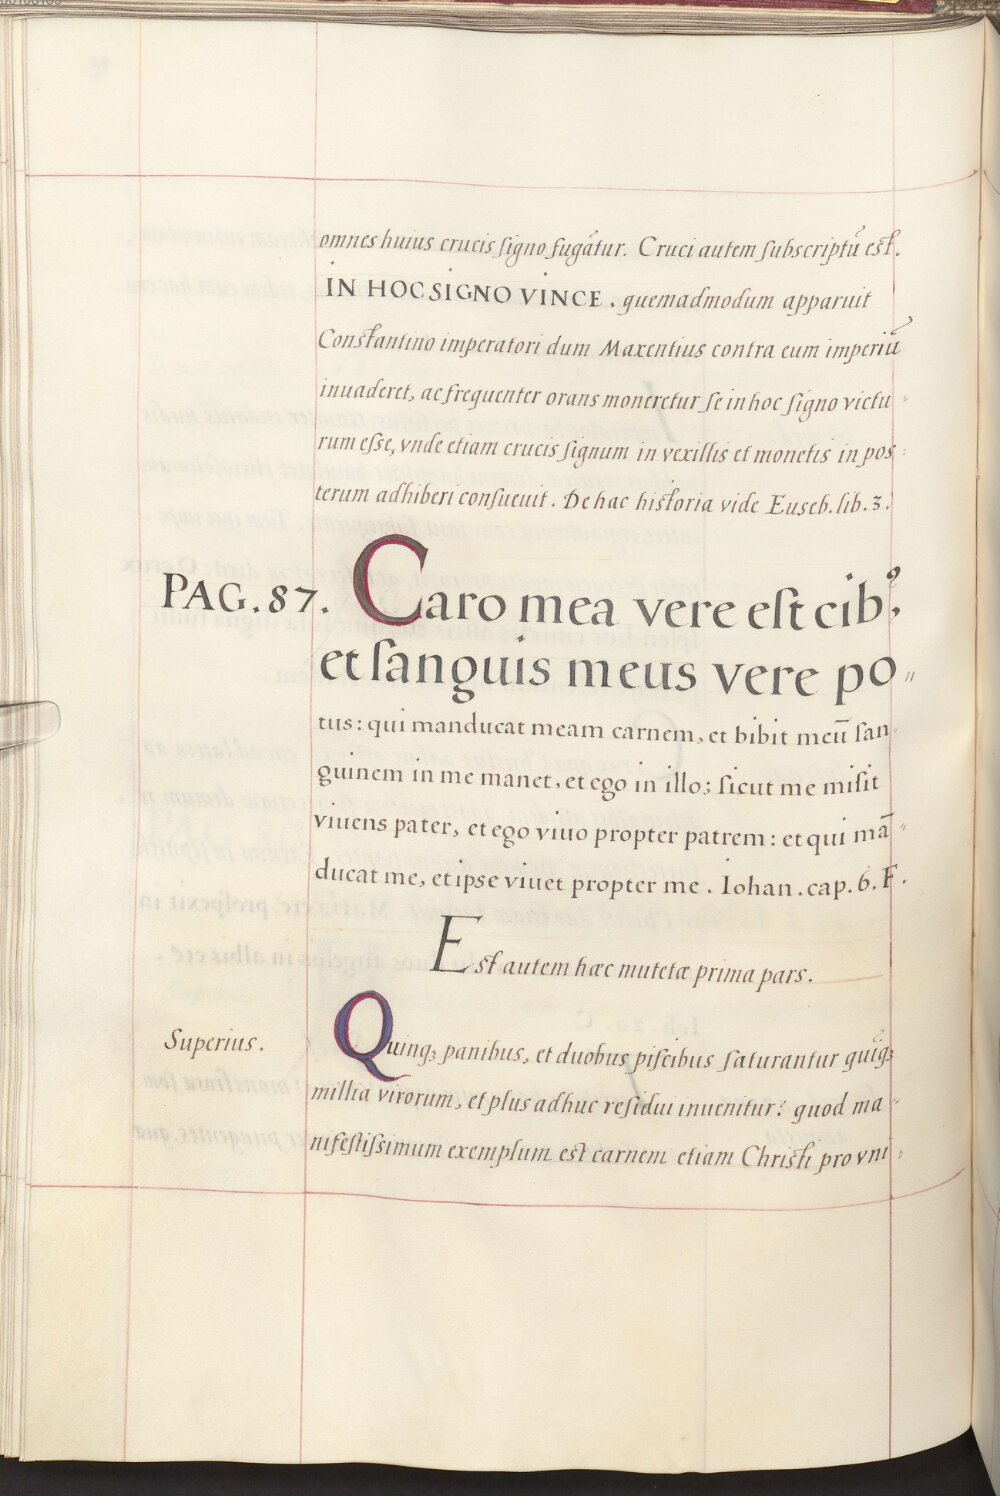 omnes huius crucis ſigno fugãtur. Cruci autem ſubscriptũ est.
IN HOC SIGNO VINCE. quemadmodum apparuit
Constantino imperatori dum Maxentius contra eum imperiũ
inuaderet, ac frequenter orans moneretur ſe in hoc ſigno victu
rum eſse, vnde etiam crucis ſignum in vexillis et monetis in pos
terum adhiberi conſueuit. De hac historia vide Euseb. lib. 3.
PAG. 87. Caro mea vere eſt cibꝰ,
et ſanguis meus vere po〃
tus: qui manducat meam carnem, et bibit meū ſan
guinem in me manet, et ego in illo; ſicut me miſit
viuens pater, et ego viuo propter patrem: et qui mā〃
ducat me, et ipse viuet propter me. Iohan. cap. 6. F.
Est autem hæc mutetæ prima pars.
Superius. Quinqꝫ panibus, et duobus piſcibus ſaturantur quĩqꝫ
millia virorum, et plus adhuc reſidui inuenitur: quod ma〃
nifeſtiſsimum exemplum est carnem etiam Christi pro vni〃